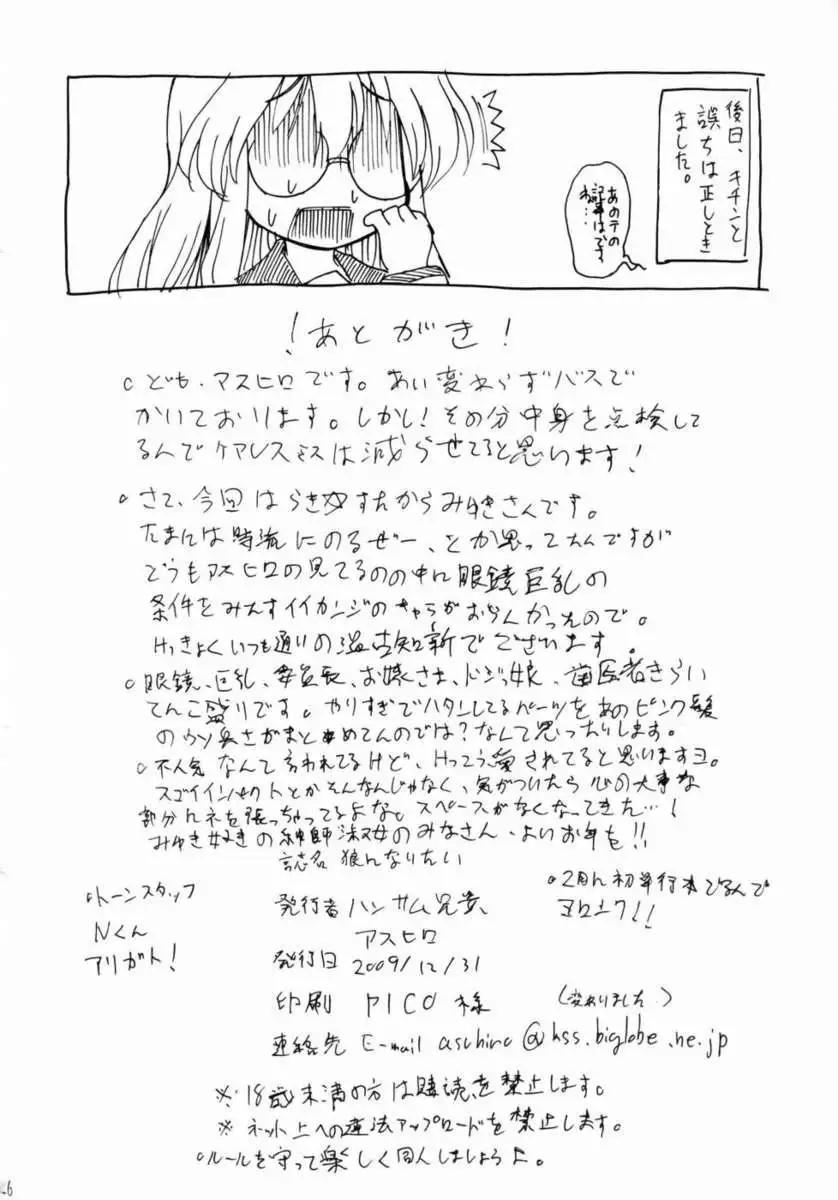 後日、キチンと
誤ちは正しとき
ました。
あのテの
記事はです
ね…
!あとがき!
○ども、アスヒロです。あい変わらずバスで
かいております。しかし!その分中身を点検して
るんでケアレスミスは減らせてると思います!
○さて、今回はらき☆すたからみゆきさんです。
たまには時流にのるぜー、とか思ってたんですが
どうもアスヒロの見てるのの中に眼鏡巨乳の
条件をみたすイイカンジのキャラがおらんかったので。
けっきょくいつも通りの温古知新でございます。
○眼鏡、巨乳、委員長、お嬢さま、ドジっ娘、歯医者きらい
てんこ盛りです。やりすぎでハタンしてるパーツをあのピンク髪
のウソ臭さがまとめてんのでは?なんて思ったりします。
○不人気なんて言われてるけど、けっこう愛されてると思いますヨ。
スゴイインパクトとかそんなんじゃなく、気がついたら心の大事な
部分に根を張っちゃってるよな。スペースがなくなってきた…!
みゆき好きの紳師淑女のみなさん、よいお年を!!
誌名 狼になりたい
○トーンスタッフ
Nくん
アリガト!
発行者 ハンサム兄貴、
アスヒロ
○2月に初単行本でるんで
ヨロシク!!
発行日 2009/12/31
印刷 PICO様
(変わりました)
連絡先 E-mail aschiro@kss.biglobe.ne.jp
※18歳未満の方は購読を禁止します。
※ネット上への違法アップロードを禁止します。
○ルールを守って楽しく同人しましょうよ。